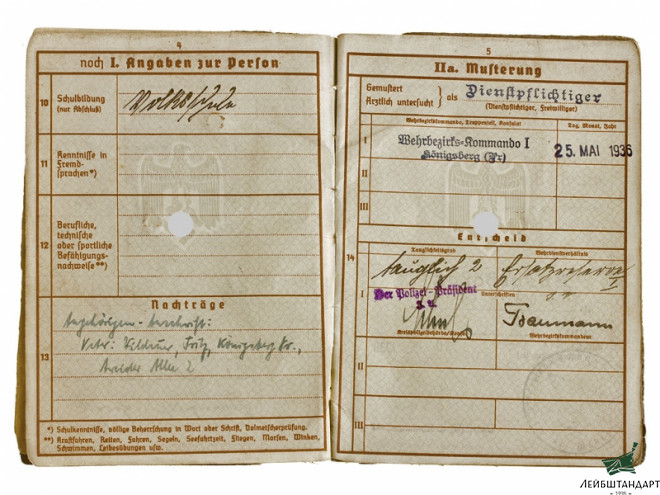 4
noch I. Angaben zur Person
10 Schulbildung
(nur Abschluß)
Volksschule
11 Kenntnisse in
Fremd-
sprachen*)
12 Berufliche,
technische
oder sportliche
Befähigungs-
nachweise**)
Nachträge
13
Angehörigen-Anschrift:
Vater: Fritz, Königsberg Pr.,
Allee 2
*) Schulkenntnisse, völlige Beherrschung in Wort oder Schrift, Dolmetscherprüfung.
**) Kraftfahren, Reiten, Fahren, Segeln, Seefahrtzeit, Fliegen, Morsen, Winken,
Schwimmen, Leibesübungen usw.
5
IIa. Musterung
Gemustert
Ärztlich untersucht } als Dienstpflichtiger
(Dienstpflichtiger, Freiwilliger)
Wehrbezirkskommando, Truppenteil, Konsulat
Tag, Monat, Jahr
I Wehrbezirks-Kommando I
Königsberg (Pr)
25. MAI 1936
II
III
Entscheid
14
Tauglichkeitsgrad
Wehrdienstverhältnis
tauglich 2 Ersatzreserve I
I Der Polizei-Präsident
Unterschriften
I. V.
Baumann
Kreispolizeibehörde/
Wehrbezirkskommandeur
II
III
ЛЕЙБШТАНДАРТ
1998